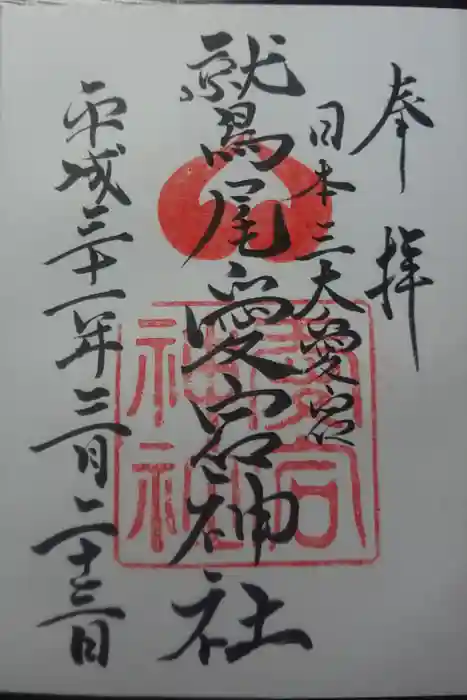 奉拝
日本三大愛宕
鷲尾愛宕神社
平成三十一年三月二十三日
愛宕神社